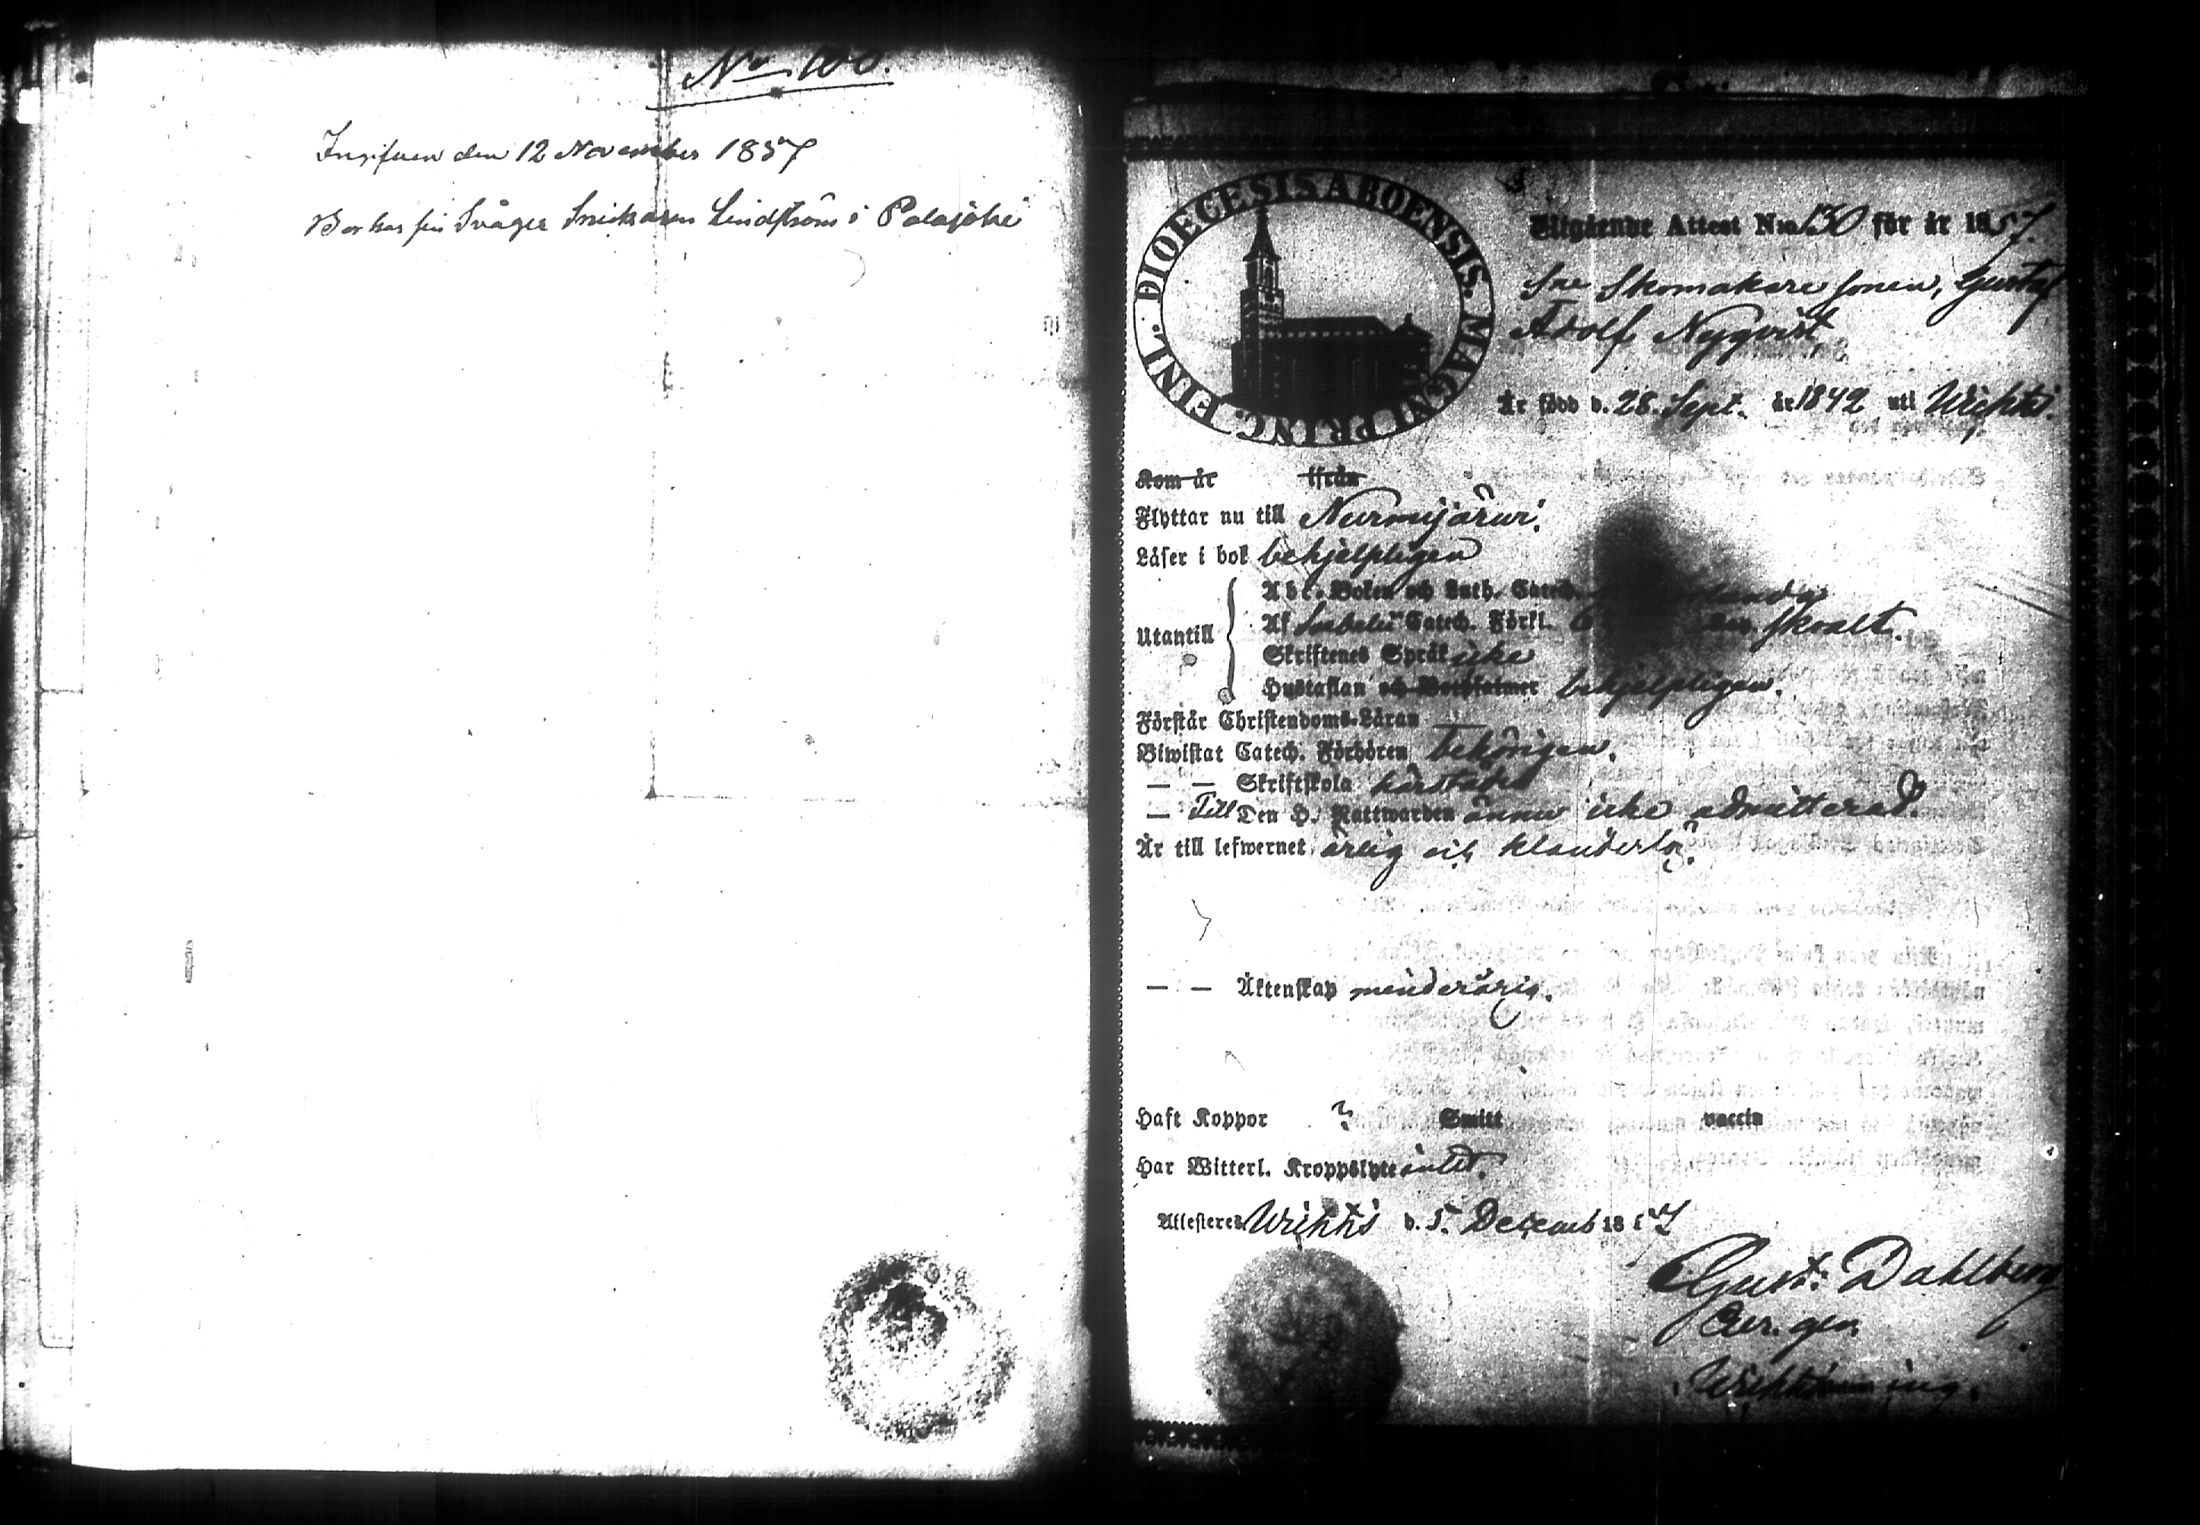 No 100.
Ingifven den 12 November 1857
Bor hos sin Svåger Snickaren Lindström i Palajoki
DIOECESIS ABOENSIS. MAGNI PRINC. FINL.
Utgående Attest N:o 130 för år 1857.
Skomakare sonen, Gustaf
Adolf Nyqvist
Är född d. 28 Sept. år 1842 uti Wichtis.
Kom år ifrån
Flyttar nu till Nurmijärwi.
Läser i bok behjelpligen
Abc-Boken och Luth. Catech.
Utantill
Af Catech. Förkl. skralt.
Skriftenes Språk icke
Hustaflan och Werbfaimer behjelpligen.
Förstår Christendoms-Läran —
Biwistat Catech. Förhören behörigen.
— — Skriftskola härstädes
— Till Den H. Nattwarden ännu icke admitterad.
Är till lefwernet ärlig och klanderlös.
— — Äktenskap minderårig.
Haft Koppor ? Smitt vaccin
Har Witterl. Kroppslyte intet.
Attesteres Wichtis d. 5 Decemb 1857
Gust: Dahlberg